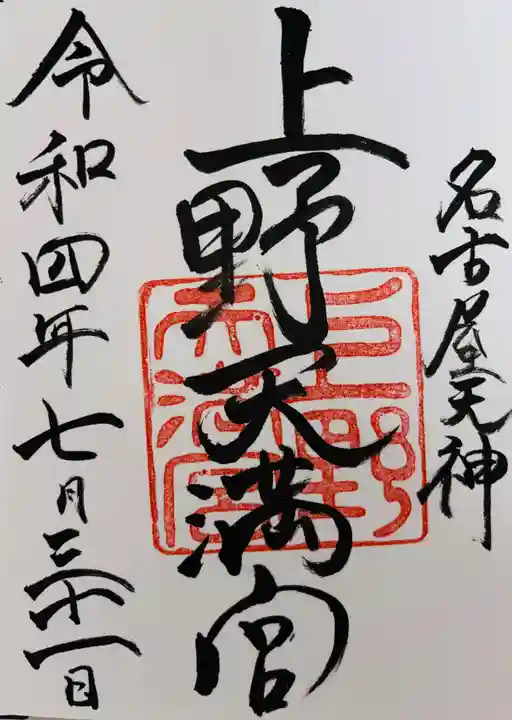 名古屋天神
上野天満宮
令和四年七月三十一日